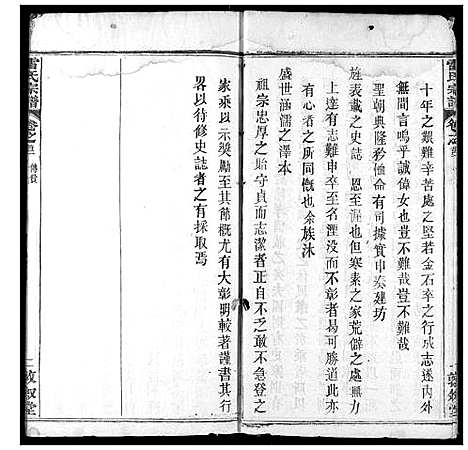 雷氏宗譜
卷之
十年之艱難辛苦處之堅若金石卒之行成志遂內外
無間言嗚乎誠偉女也豈不難哉豈不難哉
聖朝典隆矜恤命有司據實申奏建坊
旌表載之史誌 恩至渥也但寒素之家荒僻之處無力
上達有志難申卒至名湮沒而不彰者曷可勝道此亦
有心者之所同慨也余族沐
盛世涵濡之澤本
祖宗忠厚之貽守貞而志潔者正自不乏敢不急登之
家乘以示獎勵至其節概尤有大彰明較著謹書其行
畧以待修史誌者之有採取焉
雷氏宗譜
卷之
傳
敦叙堂